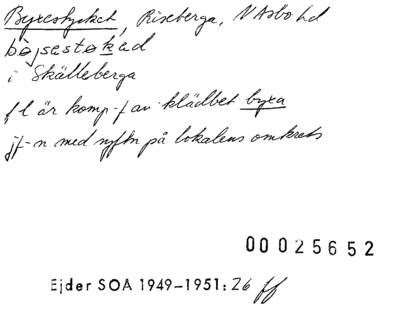 Byxestycket, Riseberga, NÅsbo hd
böjsestokad
i Skälleberga
fl är komp-f av klädbet byxa
jf-n med syftn på lokalens omkrets
00025652
Ejder SOA 1949–1951: 26 ff